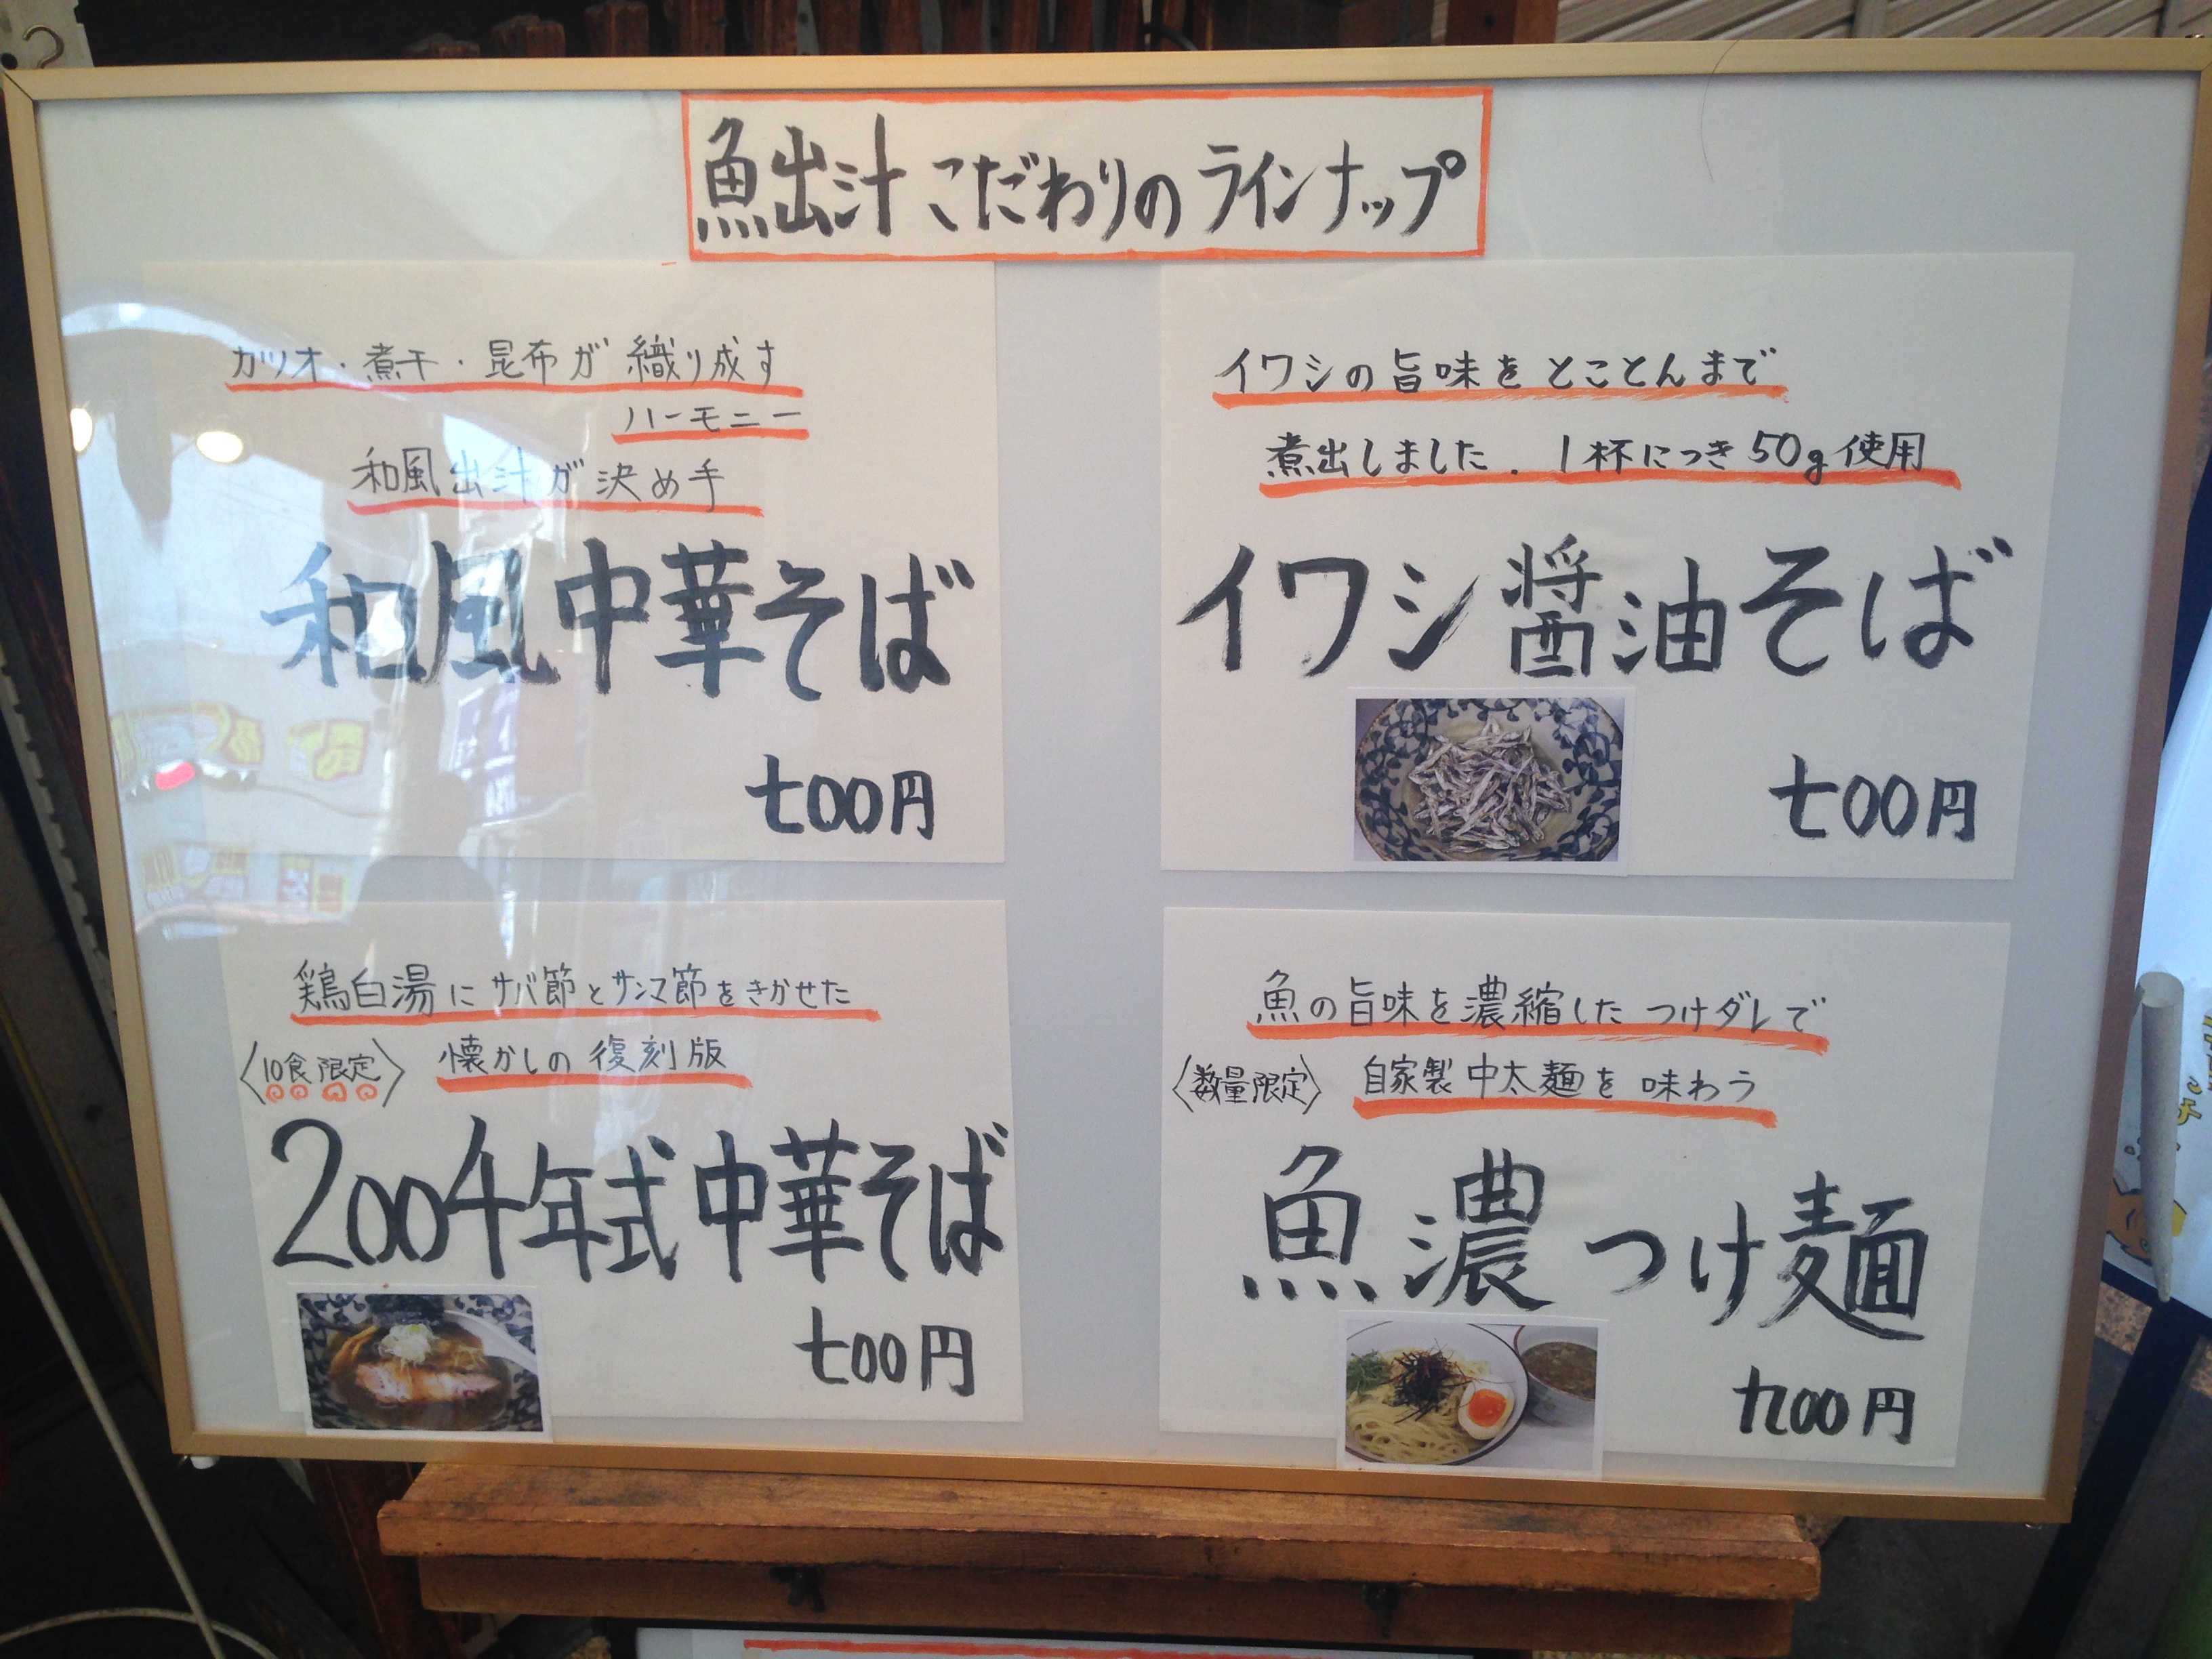 魚出汁こだわりのラインナップ
カツオ・煮干・昆布が織り成す
ハーモニー
和風出汁が決め手
和風中華そば
七00円
イワシの旨味をとことんまで
煮出しました.1杯につき50g使用
イワシ醤油そば
七00円
鶏白湯にサバ節とサンマ節をきかせた
〈10食限定〉懐かしの復刻版
2004年式中華そば
七00円
魚の旨味を濃縮したつけダレで
〈数量限定〉自家製中太麺を味わう
魚濃つけ麺
九00円